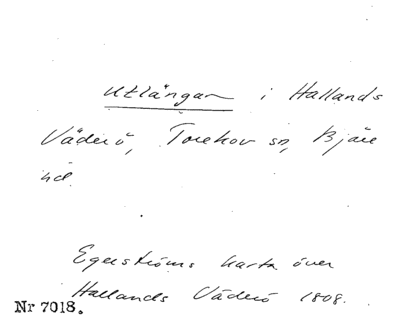 Utlångan i Hallands
Väderö, Torekov sn, Bjäre
hd.
Egerströms karta över
Hallands Väderö 1808.
Nr 7018.